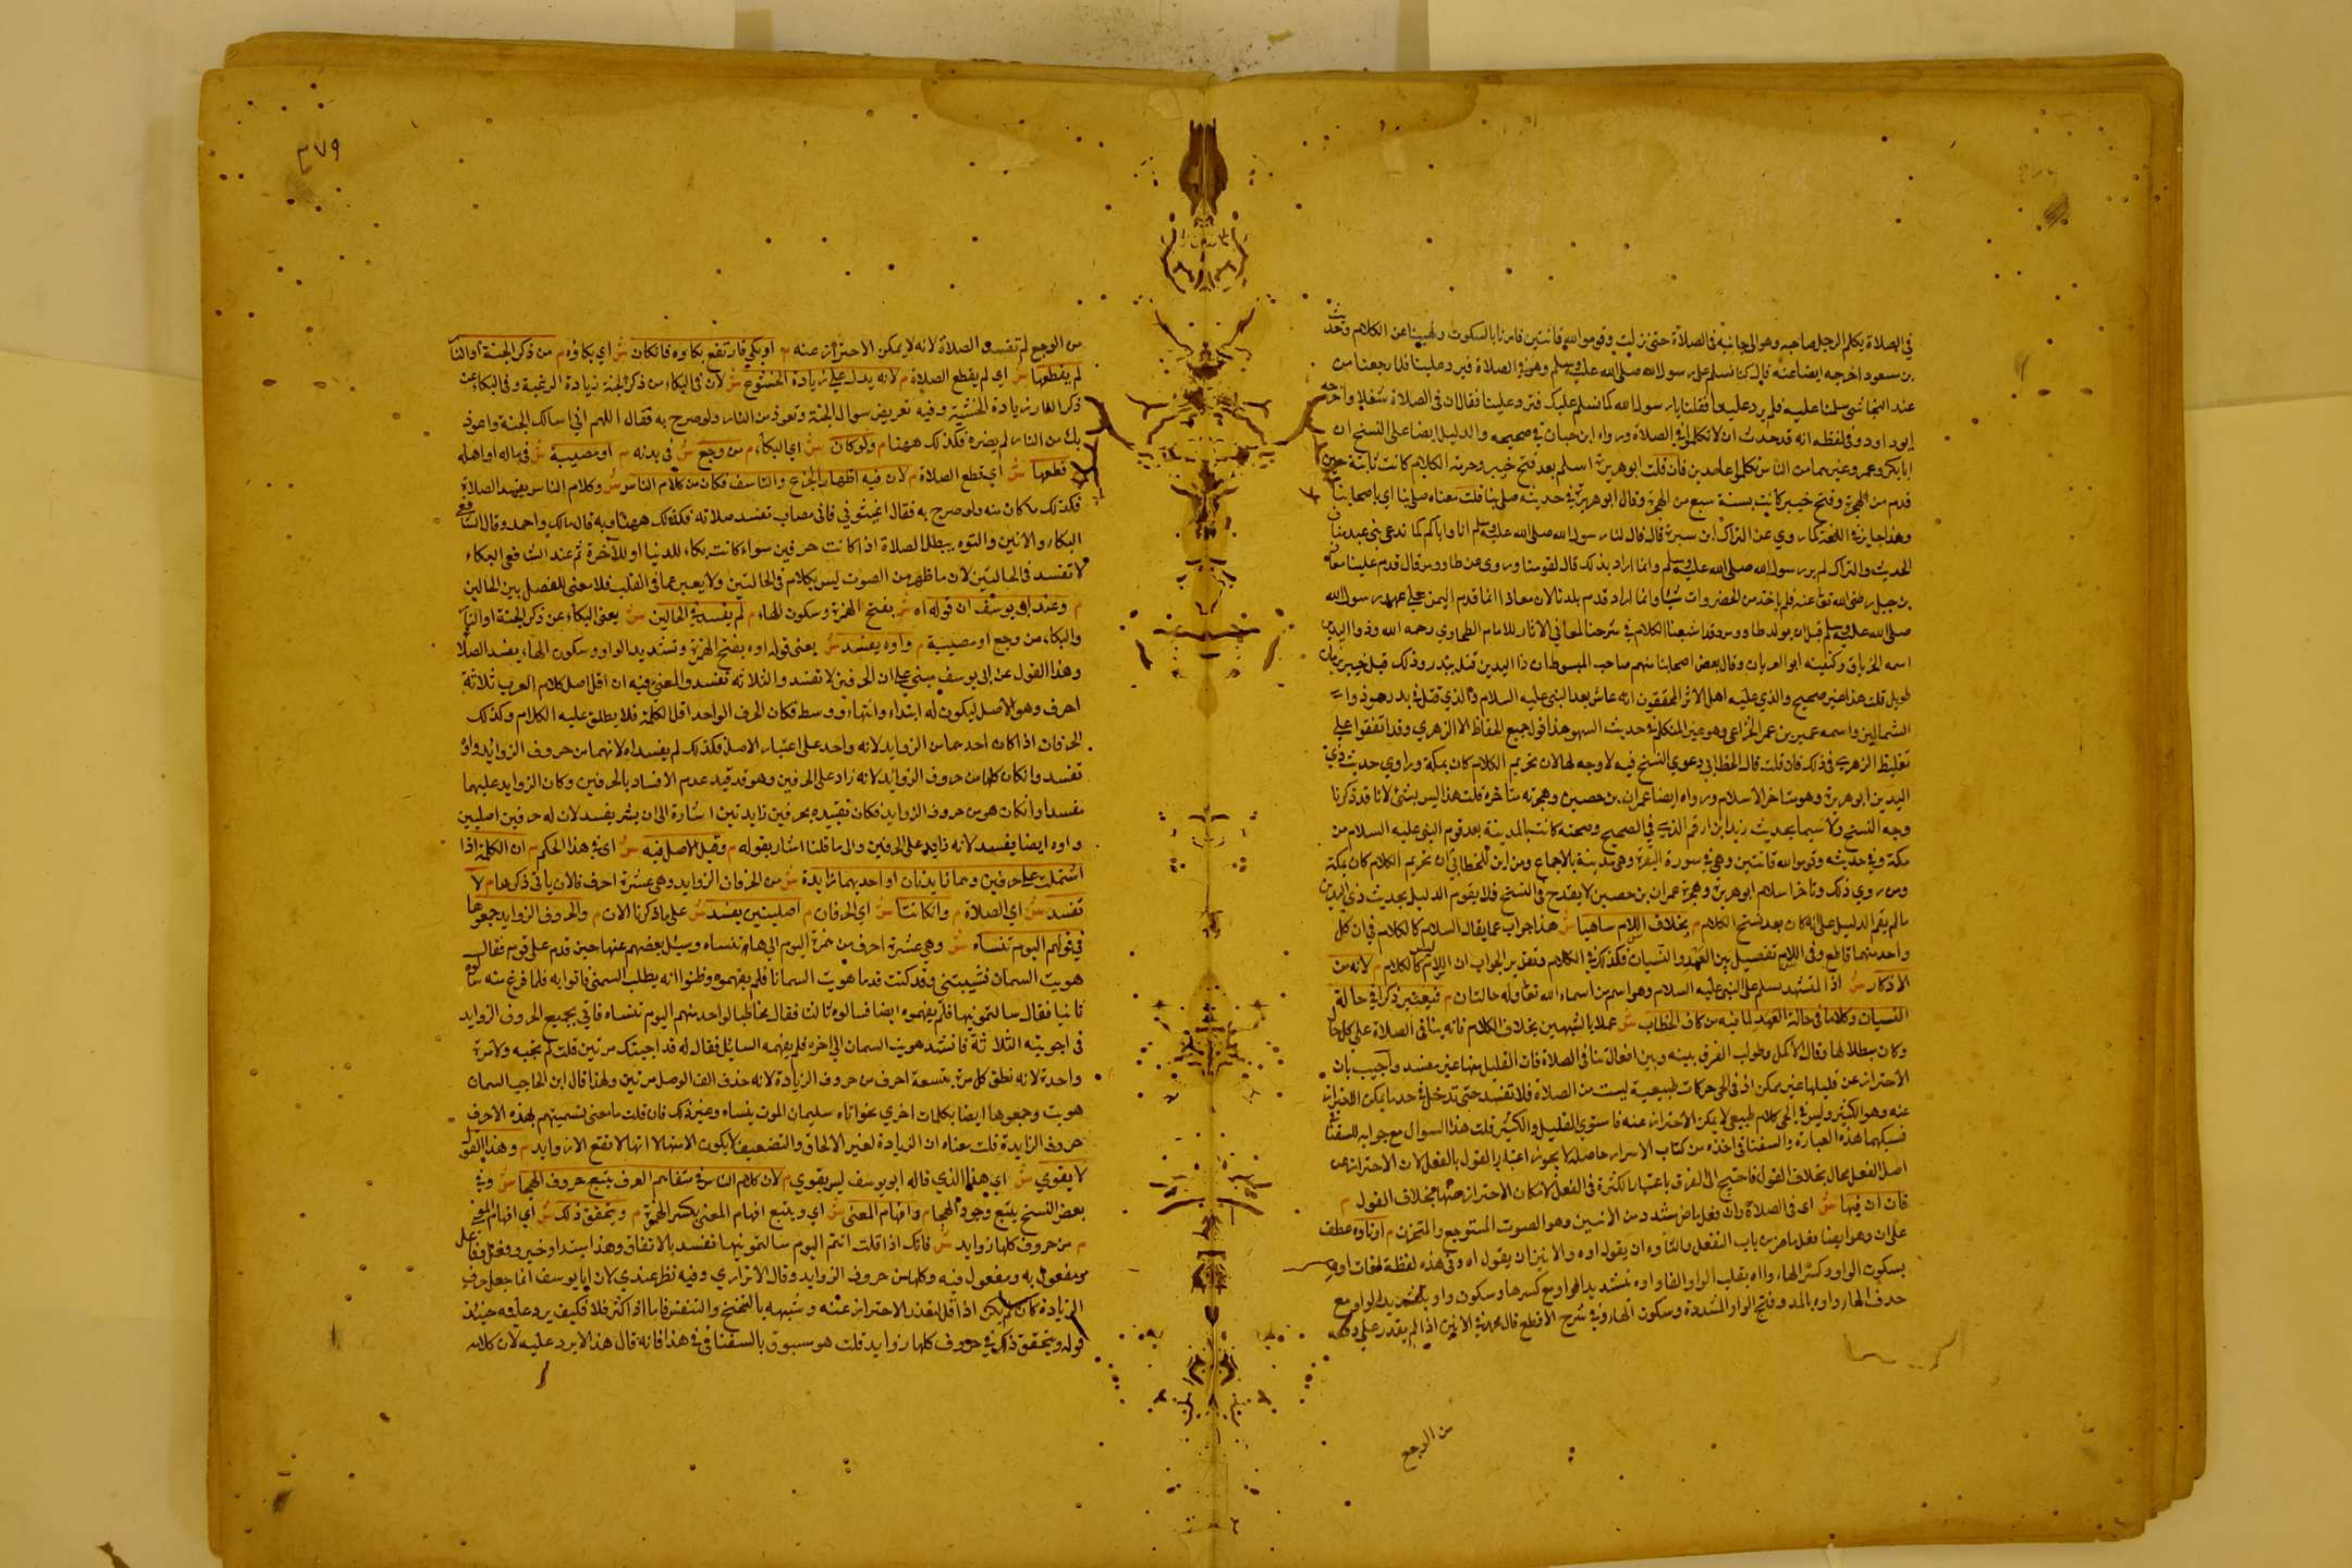 في الصلاة يكلم الرجل صاحبه وهو الى جانبه في الصلاة حتى نزلت وقوموا لله قانتين فامرنا بالسكوت ونهينا عن الكلام وحديث
بن مسعود اخرجه ايضا عنه قال كنا نسلم على رسول الله صلى الله عليه وسلم وهو في الصلاة فيرد علينا فلما رجعنا من
عند النجاشي سلمنا عليه فلم يرد علينا فقلنا يا رسول الله كنا نسلم عليك فترد علينا فقال ان في الصلاة شغلا واخرجه
ابو داود وفي لفظه انه قد حدث ان لا تكلموا في الصلاة ورواه ابن حبان في صحيحه والدليل ايضا على النسخ ان
ابا بكر وعمر وغيرهما من الناس تكلموا عامدين فان قلت ابو هريرة اسلم بعد فتح خيبر وحرمة الكلام كانت ثابتة حين
قدم من الهجرة وفتح خيبر كانت بسنة سبع من الهجرة وقال ابو هريرة في حديثه صلى بنا قلت معناه صلى بنا اي باصحابنا
وهذا جايز في اللغة كما روي عن النزال بن سبرة قال قال لنا رسول الله صلى الله عليه وسلم انا واياكم كنا ندعى بني عبد مناف
الحديث والنزال لم ير رسول الله صلى الله عليه وسلم وانما اراد بذلك قال لقومنا وروى عن طاووس قال قدم علينا معاذ
بن جبل رضي الله تعالى عنه فلم ياخذ من الخضروات شيئا وانما اراد قدم بلدنا لان معاذا انما قدم اليمن على عهد رسول الله
صلى الله عليه وسلم قبل ان يولد طاووس وقد اشبعنا الكلام في شرحنا لمعاني الاثار للامام الطحاوي رحمه الله وذوا اليدين
اسمه الخرباق وكنيته ابو العريان وقال بعض اصحابنا منهم صاحب المبسوط ان ذا اليدين قتل ببدر وذلك قبل خيبر بزمان
طويل قلت هذا غير صحيح والذي عليه اهل الاثر المحققون انه عاش بعد النبي عليه السلام والذي قتل في بدر هو ذوا
الشمالين واسمه عمير بن عمر الخزاعي وهو غير المتكلم في حديث السهو هذا قول جميع الحفاظ الا الزهري وقد اتفقوا على
تغليظ الزهري في ذلك فان قلت قال الخطابي دعوي النسخ فيه لا وجه لها لان تحريم الكلام كان بمكة وراوي حديث ذي
اليدين ابو هريرة وهو متاخر الاسلام ورواه ايضا عمران بن حصين وهجرته متاخرة قلت هذا ليس بشئ لانا قد ذكرنا
وجه النسخ ولا سيما بحديث زيد ابن ارقم الذي في الصحيح وصحبته كانت بالمدينة بعد قدوم النبي عليه السلام من
مكة وفي حديثه وقوموا لله قانتين وهي في سورة البقرة وهي مدينة بالاجماع ومن اين للخطابي ان تحريم الكلام كان بمكة
ومن روي ذلك وتاخر اسلام ابو هريرة وهجرة عمران بن حصين لا يقدح في النسخ فلا يقوم الدليل بحديث ذي اليدين
ما لم يقم الدليل على انه كان بعد نسخ الكلام م بخلاف السلام ساهيا ش هذا جواب عما يقال السلام كالكلام في ان كل
واحد منهما قاطع وفي السلام تفصيل بين العمد والنسيان فكذلك في الكلام وتقرير الجواب ان السلام ليس كالكلام م لانه من
الاذكار ش اذا المتشهد يسلم على النبي عليه السلام وهو اسم من اسماء الله تعالى وله حالتان م فيعتبر ذكرا في حالة
النسيان وكلاما في حالة العمد لما فيه من كاف الخطاب ش عملا بالشبهين بخلاف الكلام فانه ينافي الصلاة على كل حال
وكان مبطلا لها وقال الاكمل وطولب الفرق بينه وبين افعال تنافي الصلاة فان القليل منها غير مفسد واجيب بان
الاحتراز عن قليلها غير ممكن اذ في الحي حركات طبيعية ليست من الصلاة فلا تفسد حتى تدخل في حد ما يمكن الاحتراز
عنه وهو الكثير وليس في الحي كلام طبيعي لا يمكن الاحتراز عنه فاستوي القليل والكثير قلت هذا السوال مع جوابه للسغناقي
فسبكهما هذه العبارة والسغناقي اخذه من كتاب الاسرار حاصله لا يجوز اعتبار القول بالفعل لان الاحتراز عن
اصل الفعل محال بخلاف القول فاحتيج الى الفرق باعتبار الكثرة في الفعل لامكان الاحتراز عنها بخلاف القول م
فان ان فيها ش اي في الصلاة وان فعل ماض مشدد من الانين وهو الصوت المتوجع والمتحزن م او تاوه عطف
على ان وهو ايضا فعل ماض من باب التفعل والتاوه ان يقول اوه والانين ان يقول اه وفي هذه لفظة لغات اوه
بسكون الواو وكسر الهاء واه بقلب الواو الفا واوه بتشديد الواو مع كسرها وسكون واو بتشديد الواو مع
حذف الهاء واوه بالمد وفتح الواو المشددة وسكون الهاء وفي شرح الاقطع قال محمد في الانين اذا لم يقدر على دفعه
من الوجع
٣٧٩
من الوجع لم تفسد الصلاة لانه لا يمكن الاحتراز عنه م او بكي فارتفع بكاوه فان كان ش اي بكاؤه م من ذكر الجنة او النار
لم يقطعها ش اي لم يقطع الصلاة م لانه يدل على زيادة الخشوع ش لان في البكاء من ذكر الجنة زيادة الرغبة وفي البكاء عن
ذكر النار زيادة الخشية وفيه تعريض سوال الجنة وتعوذ من النار ولو صرح به فقال اللهم اني اسالك الجنة واعوذ
بك من النار لم يضره فكذلك ههنا م ولو كان ش اي البكاء م من وجع ش في بدنه م او مصيبة ش في ماله او اهله
قطعها ش اي قطع الصلاة م لان فيه اظهار الجزع والتاسف فكان من كلام الناس ش وكلام الناس يفسد الصلاة
فكذلك ما كان منه ولو صرح به فقال اغيثوني فاني مصاب تفسد صلاته فكذلك ههنا وبه قال مالك واحمد وقال الشافعي
البكاء والانين والتاوه يبطل الصلاة اذا كانت حرفين سواء كانت بكاء للدنيا او للآخرة ثم عند الشافعي البكاء
لا تفسد في الحالين لان ما ظهر من الصوت ليس بكلام في الحالتين ولا يعبر عما في القلب فلا معنى للفصل بين الحالين
م وعند ابي يوسف ان قوله اه ش بفتح الهمزة وسكون الهاء م لم يفسد في الحالين ش يعني البكاء عن ذكر الجنة او النار
والبكاء من وجع او مصيبة م واوه يفسد ش يعني قوله اوه بفتح الهمزة وتشديد الواو وسكون الهاء يفسد الصلاة
وهذا القول عن ابي يوسف مبني على ان الحرفين لا تفسد والثلاثة تفسد والمعنى فيه ان اقل اصل كلام العرب ثلاثة
احرف وهو الاصل ليكون له ابتداء وانتهاء ووسط فكان الحرف الواحد اقل الكلمة فلا يطلق عليه الكلام وكذلك
الحرفان اذا كان احدهما من الزوايد لانه واحد على اعتبار الاصل فكذلك لم يفسد اه لانهما من حروف الزوايد واوه
تفسد وان كان كلها من حروف الزوائد لانه زاد على الحرفين وهو قد قيد عدم الافساد بالحرفين وكان الزوايد عليهما
مفسدا وان كان هو من حروف الزوايد فكان تقييده بحرفين زايدتين اشارة الى ان بشر يفسد لان له حرفين اصليين
واوه ايضا يفسد لانه زايد على الحرفين والى ما قلنا اشار بقوله م وقيل الاصل فيه ش اي في هذا الحكم م ان الكلمة اذا
اشتملت على حرفين وهما زايدتان او احدهما زايدة ش من الحرفان الزوايد وهي عشرة احرف فالان ياتي ذكرها م لا
تفسد ش اي الصلاة م وان كانتا ش اي الحرفان م اصليتين يفسد ش على ما ذكرنا الان م والحروف الزوايد جمعوها
في قولهم اليوم تنساه ش وهي عشرة احرف من همزة اليوم الى هاء تنساه وسئل بعضهم عنها حين قدم على قوم فقال
هويت السمان فشيبتني وقد كنت قدما هويت السمانا فلم يفهموه وظنوا انه يطلب السمن فاتوا به فلما فرغ منه سالوه
ثانيا فقال سالتمونيها فلم يفهموه ايضا فسالوه ثالثا فقال مخاطبا لواحد منهم اليوم تنساه فاتي بجميع الحروف الزوايد
في اجوبته الثلاثة فانشد هويت السمان الى اخره فلم يفهمه السايل فقال له قد اجبتك مرتين قلت لم يجبه ولا مرة
واحدة لانه نطق كل مرة بتسعة احرف من حروف الزيادة لانه حذف الف الوصل مرتين ولهذا قال ابن الحاجب السمان
هويت وجمعوها ايضا بكلمات اخري نحو اتاه سليمان الموت ينساه وغير ذلك فان قلت ما معنى تسميتهم بهذه الاحرف
حروف الزايدة قلت معناه ان الزيادة لغير الالحاق والتضعيف لا يكون الا منها لا انها لا تقع الا زوايد م وهذا القول
لا يقوي ش اي هذا الذي قاله ابو يوسف ليس بقوي م لان كلام الناس في متفاهم العرف يتبع حروف الهجاء ش وفي
بعض النسخ يتبع وجود الهجاء م وافهام المعنى ش اي ويتبع افهام المعنى بكسر الهمزة م ويتحقق ذلك ش اي افهام المعنى
م من حروف كلها زوايد ش فانك اذا قلت انتم اليوم سالتمونيها تفسد بالاتفاق وهذا مبتدا وخبر وفعل وفاعل
ومفعول به ومفعول فيه وكلها من حروف الزوايد وقال الاترازي وفيه نظر عندي لان ابا يوسف انما جعل حرف
الزيادة كان لم يكن اذا قل لتعذر الاحتراز عنه وشبهه بالتنحنح والتنفس فاما اذا كثر فلا فكيف يرد عليه حينئذ
قوله ويتحقق ذلك في حروف كلها زوايد قلت هو مسبوق بالسغناقي في هذا فانه قال هذا لا يرد عليه لان كلامه